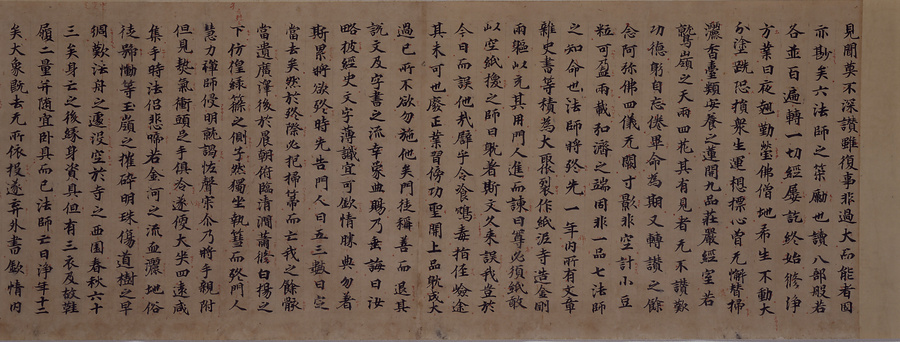 見聞莫不深讚雖復事非過大而能者固
亦尠矣六法師之策勵也讀八部般若
各並百遍轉一切經屢訖終始修淨
方業日夜翹勤瑩佛僧地希生不動大
分塗跣恐損衆生運想標心曽无懈替掃
灑香臺類安養之蓮開九品莊嚴經室若
鷲嶺之天雨四花其有見者无不讚歎
功德躬自忘倦畢命為期又轉讚之餘
念阿弥佛四儀无闕寸影非空計小豆
粒可盈兩載和濟之端固非一品七法師
之知命也法師將終先一年内所有文章
雜史書等積為大聚裂作紙泥寺造金剛
兩軀以充其用門人進而諫曰尊必須紙敢
以空紙換之師曰躭著斯文久來誤我豈於
今日而誤他哉譬乎令飡鴆毒指徑嶮途
其未可也廢正業習傍功聖開上品躭成大
過已所不欲勿施他矣門徒稱善而退其
說文及字書之流幸蒙曲賜乃垂誨曰汝
略披經史文字薄識宜可欽情勝典勿著
斯累將欲終時先告門人曰吾三數日定
當去矣然於終際必抱掃箒而亡我之餘骸
當遺廣澤後於晨朝俯臨清澗蕭條白楊之
下彷徨綠篠之側孑然獨坐執篲而終門人
慧力禪師侵明就謁恠聲寂尒乃將手親附
但見熱氣衝頭足手俱冷遂便大哭四遠咸
集于時法侶悲啼若金河之流血灑地俗
徒號慟等玉嶺之摧碎明珠傷道樹之早
凋歎法舟之遽沒窆於寺之西園春秋六十
三矣身亡之後緣身資具但有三衣及故鞋
履二量并随宜卧具而已法師亡日淨年十二
矣大象旣去无所依投遂弃外書欽情内